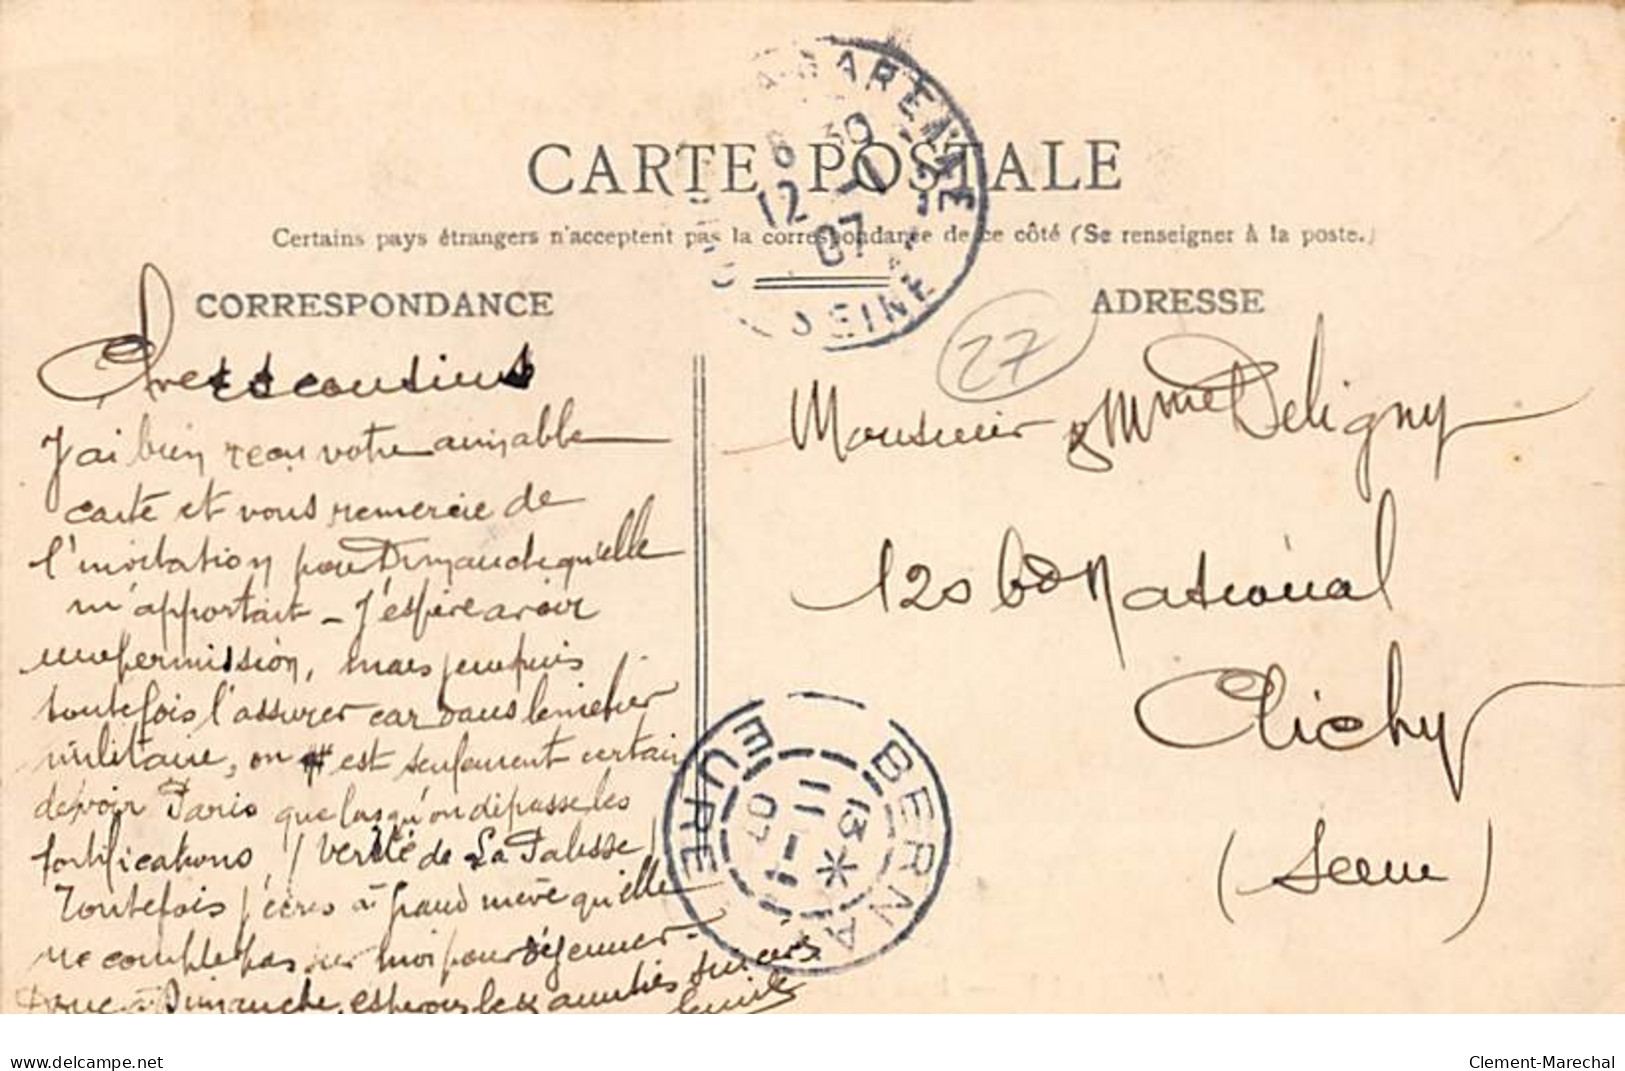 CARTE POSTALE
Certains pays étrangers n'acceptent pas la correspondance de ce côté (Se renseigner à la poste.)
CORRESPONDANCE
ADRESSE
GARENNE
6 30
12 -1
07
SEINE
27
Chers cousins
J'ai bien reçu votre aimable
carte et vous remercie de
l'invitation pour Dimanche qu'elle
m'apportait - J'espère avoir
une permission, mais je ne puis
toutefois l'assurer car dans le métier
militaire, on est seulement certain
de voir Paris que lorsqu'on dépasse les
fortifications, (vérité de La Palisse)
Toutefois j'écris à grand mère qu'elle
ne compte pas sur moi pour déjeuner -
Donc à Dimanche, espérons-le & amitiés sincères
Monsieur & Mme Deligny
120 bd National
Clichy
(Seine)
BERNAY
EURE
13 *
11 -1
07
delcampe.net
Clement-Marechal